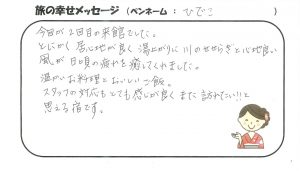 旅の幸せメッセージ（ペンネーム：ひでこ）
今回が2回目の来館でした。
とにかく居心地が良く湯上がりに川のせせらぎと心地良い
風が日頃の疲れを癒してくれました。
温かいお料理とおいしいご飯。
スタッフの対応もとても感じが良くまた訪れたい!!と
思える宿です。